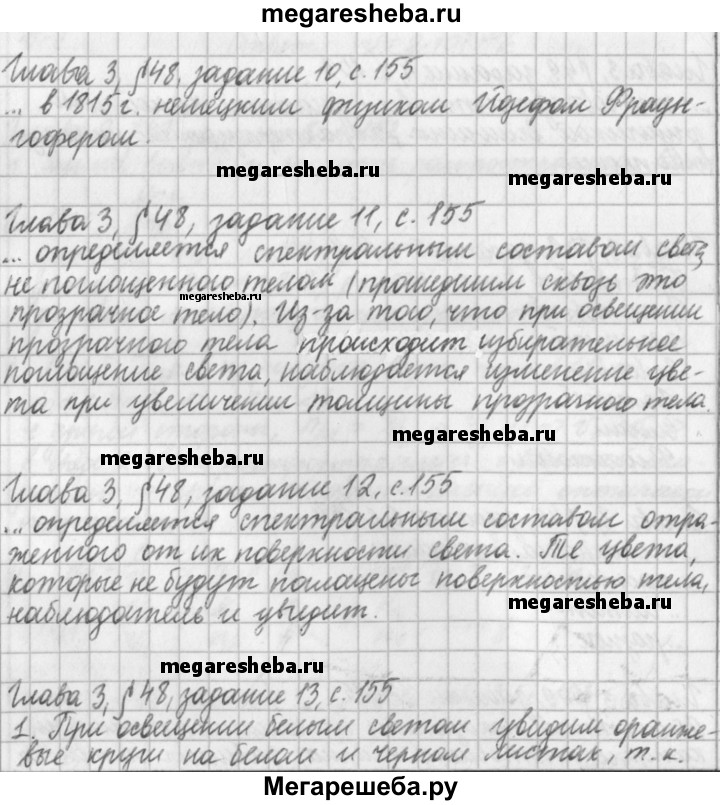 megaresheba.ru
Глава 3, §48, задание 10, с. 155
... в 1815 г. немецким физиком Йозефом Фраун-
гофером.
megaresheba.ru
megaresheba.ru
Глава 3, §48, задание 11, с. 155
... определяется спектральным составом света,
не поглощенного телом (прошедшим сквозь это
megaresheba.ru
прозрачное тело). Из-за того, что при освещении
прозрачного тела происходит избирательное
поглощение света, наблюдается изменение цве-
та при увеличении толщины прозрачного тела.
megaresheba.ru
megaresheba.ru
Глава 3, §48, задание 12, с. 155
... определяется спектральным составом отра-
женного от их поверхности света. Те цвета,
которые не будут поглощены поверхностью тела,
наблюдатель и увидит.
megaresheba.ru
megaresheba.ru
Глава 3, §48, задание 13, с. 155
1. При освещении белым светом увидим оранже-
вые круги на белом и черном листах, т.к.
Мегарешеба.ру